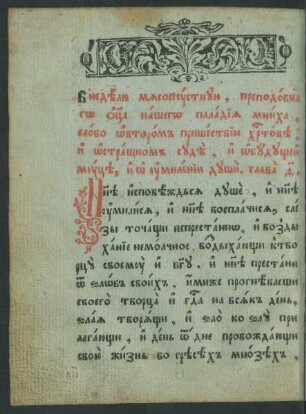 В недѣлю мѧсопꙋстнꙋю, преподобна
гѡ ѻц҃а нашегѡ паладїѧ мниха,
слово ѡ второмъ пришествїи хр҃товѣ,
и҆ ѡ страшномъ сꙋдѣ, и҆ ѡ бꙋдꙋщей
мꙋцѣ, и҆ ѡ оумиленїи дꙋши, глава д҃.
Ны́нѣ исповѣждьсѧ дꙋше, и҆ нн҃ѣ
оумилисѧ, и҆ нн҃ѣ восплачисѧ, сле
зы точащи непрестанно, и҆ возды
ханїе немолчное, воздыхающи к тво
рцꙋ своемꙋ и҆ бг҃ꙋ. и҆ нн҃ѣ престани
ѿ ѕлобъ своихъ, имиже прогнѣваеши
своего творца и҆ гд҇а на всѧкъ день,
ѕлаѧ творѧщи, и҆ ѕло ко ѕлꙋ при
лагающи, и҆ день ѿ дне провождающи
свою жизнь во грѣсѣхъ мнозѣхъ,